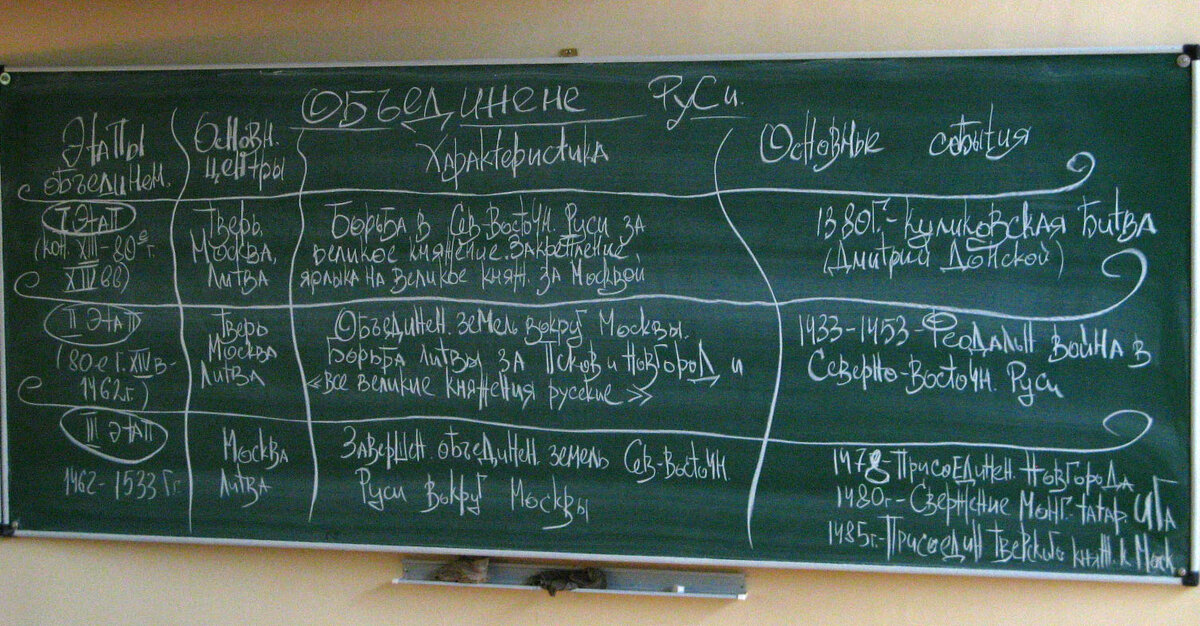 Объединене Руси.
Этапы
объединем.
Основн.
центры
Характеристика
Основные события
I Этап
(кон. XIII - 80е г.
XIV вв)
Тверь,
Москва,
Литва
Борьба в Сев-Восточн. Руси за
великое княжение. Закрепление
ярлыка на великое княж. за Москвой
1380г.- Куликовская битва
(Дмитрий Донской)
II Этап
(80-е г. XIV в-
1462г.)
Тверь
Москва
Литва
Объединен. земель вокруг Москвы.
Борьба Литвы за Псков и Новгород и
«все великие княжения русские»
1433-1453- Феодальн война в
Северно-Восточн. Руси
III Этап
1462-1533 Гг.
Москва
Литва
Завершен объединен. земель Сев-Восточн.
Руси вокруг Москвы
1478-Присоединен. Новгорода
1480г-Свержение монг-татар. ига
1485г.-Присоедин Тверского княж. к Моск